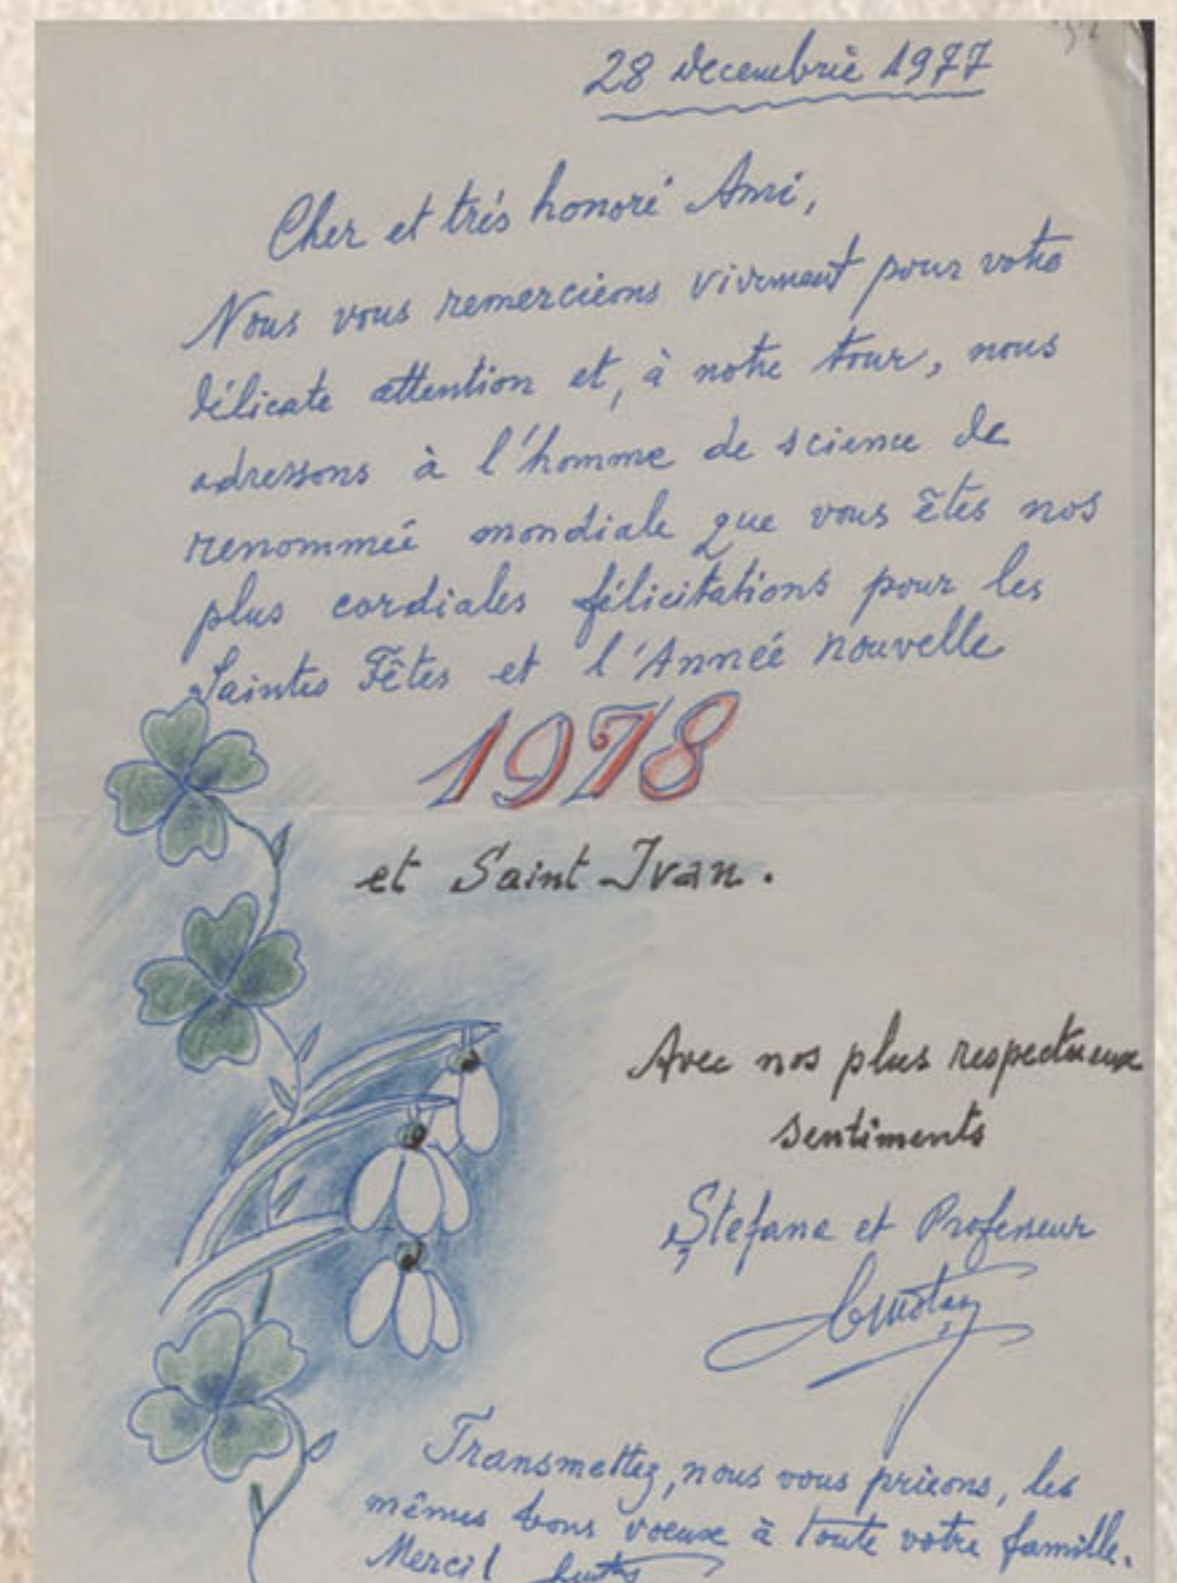 28 decembrie 1977
Cher et trés honoré Ami,
Nous vous remercions vivment pour votre
délicate attention et, à notre tour, nous
adressons à l'homme de science de
renommeé mondiale que vous êtes nos
plus cordiales félicitations pour les
Saintes Fêtes et l'Anneé nouvelle
1978
et Saint Ivan.
Avec nos plus respectueux
sentiments
Ștefana et Professeur
Transmettez, nous vous prieons, les
mêmes bons voeux à toute votre famille.
Merci!